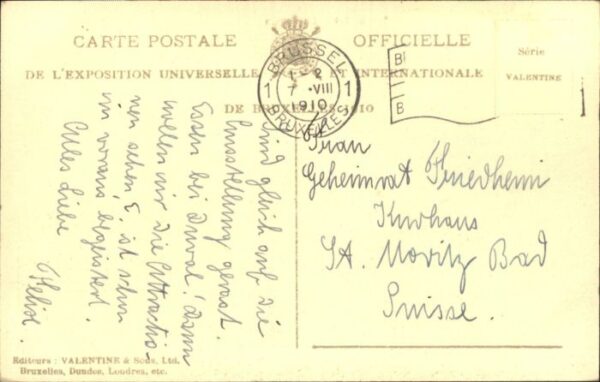 CARTE POSTALE OFFICIELLE
DE L'EXPOSITION UNIVERSELLE ET INTERNATIONALE
DE BRUXELLES 1910
Série
VALENTINE
BRUSSEL
1 - 2
1 7 VIII 1
1910
BRUXELLES
B
B
Sind gleich auf die
Ausstellung gerast.
Essen bei Duval! Dann
wollen wir die Attractio-
nen sehen, E. ist schon
im voraus begeistert.
Alles Liebe
Felix.
Frau
Geheimrat Friedheim
Kurhaus
St. Moritz Bad
Suisse.
Editeurs : VALENTINE & Sons, Ltd.
Bruxelles, Dundee, Londres, etc.